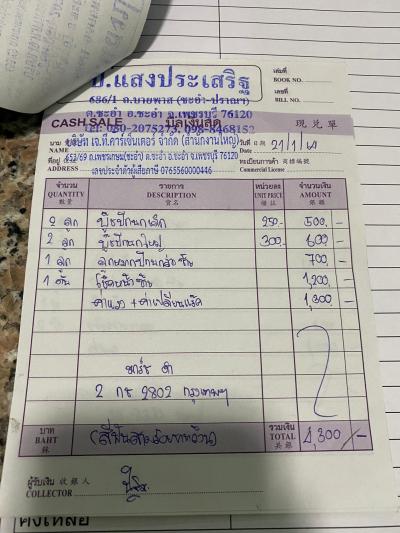 ป.แสงประเสริฐ
เล่มที่
BOOK NO.
686/1 ถ.บายพาส (ชะอำ-ปราณฯ)
เลขที่
BILL NO.
ต.ชะอำ อ.ชะอำ จ.เพชรบุรี 76120
โทร. 080-2075273, 098-8468152
CASH SALE บิลเงินสด 現兑單
นาม บริษัท เจ.ที.คาร์เซ็นเตอร์ จำกัด (สำนักงานใหญ่)
NAME
วันที่ 日期 21/1/
Date
ที่อยู่ 652/69 ถ.เพชรเกษม(ชะอำ) ต.ชะอำ อ.ชะอำ จ.เพชรบุรี 76120
ADDRESS
ทะเบียนการค้า 商標編號
Commercial License
เลขประจำตัวผู้เสียภาษี 0765560000446
จำนวน รายการ หน่วยละ จำนวนเงิน
QUANTITY DESCRIPTION UNIT PRICE AMOUNT
數量 貨名 銀額
2 ลูก บู๊ชปีกนกเล็ก 250.- 500 -
2 ลูก บู๊ชปีกนกใหญ่ 300.- 600 -
1 ลูก 700 -
1 1,200 -
ค่าแรง + ค่าเปลี่ยน 1,300 -
ดำ
2 กช 2802 กรุงเทพฯ
บาท
BAHT
(สี่พันสามร้อยบาทถ้วน)
รวมเงิน
TOTAL
4,300/-
ผู้รับเงิน 收銀人
COLLECTOR
คงเหลือ